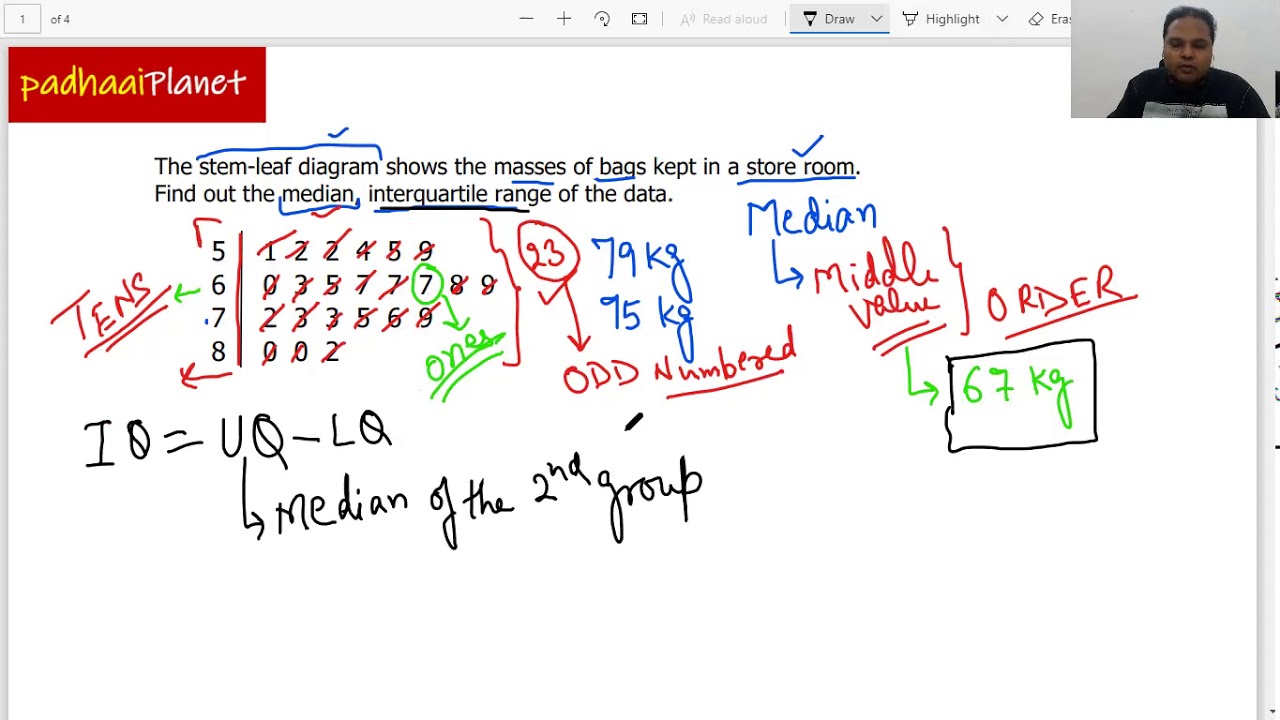 1 of 4 Read aloud Draw Highlight Eras
padhaaiPlanet
The stem-leaf diagram shows the masses of bags kept in a store room.
Find out the median, interquartile range of the data.
5 1 2 2 4 5 9
6 0 3 5 7 7 7 8 9
7 2 3 3 5 6 9
8 0 0 2
TENS
ones
23
79 kg
95 kg
ODD Numbered
Median
Middle
value
ORDER
67 kg
IQ = UQ - LQ
Median of the 2nd group